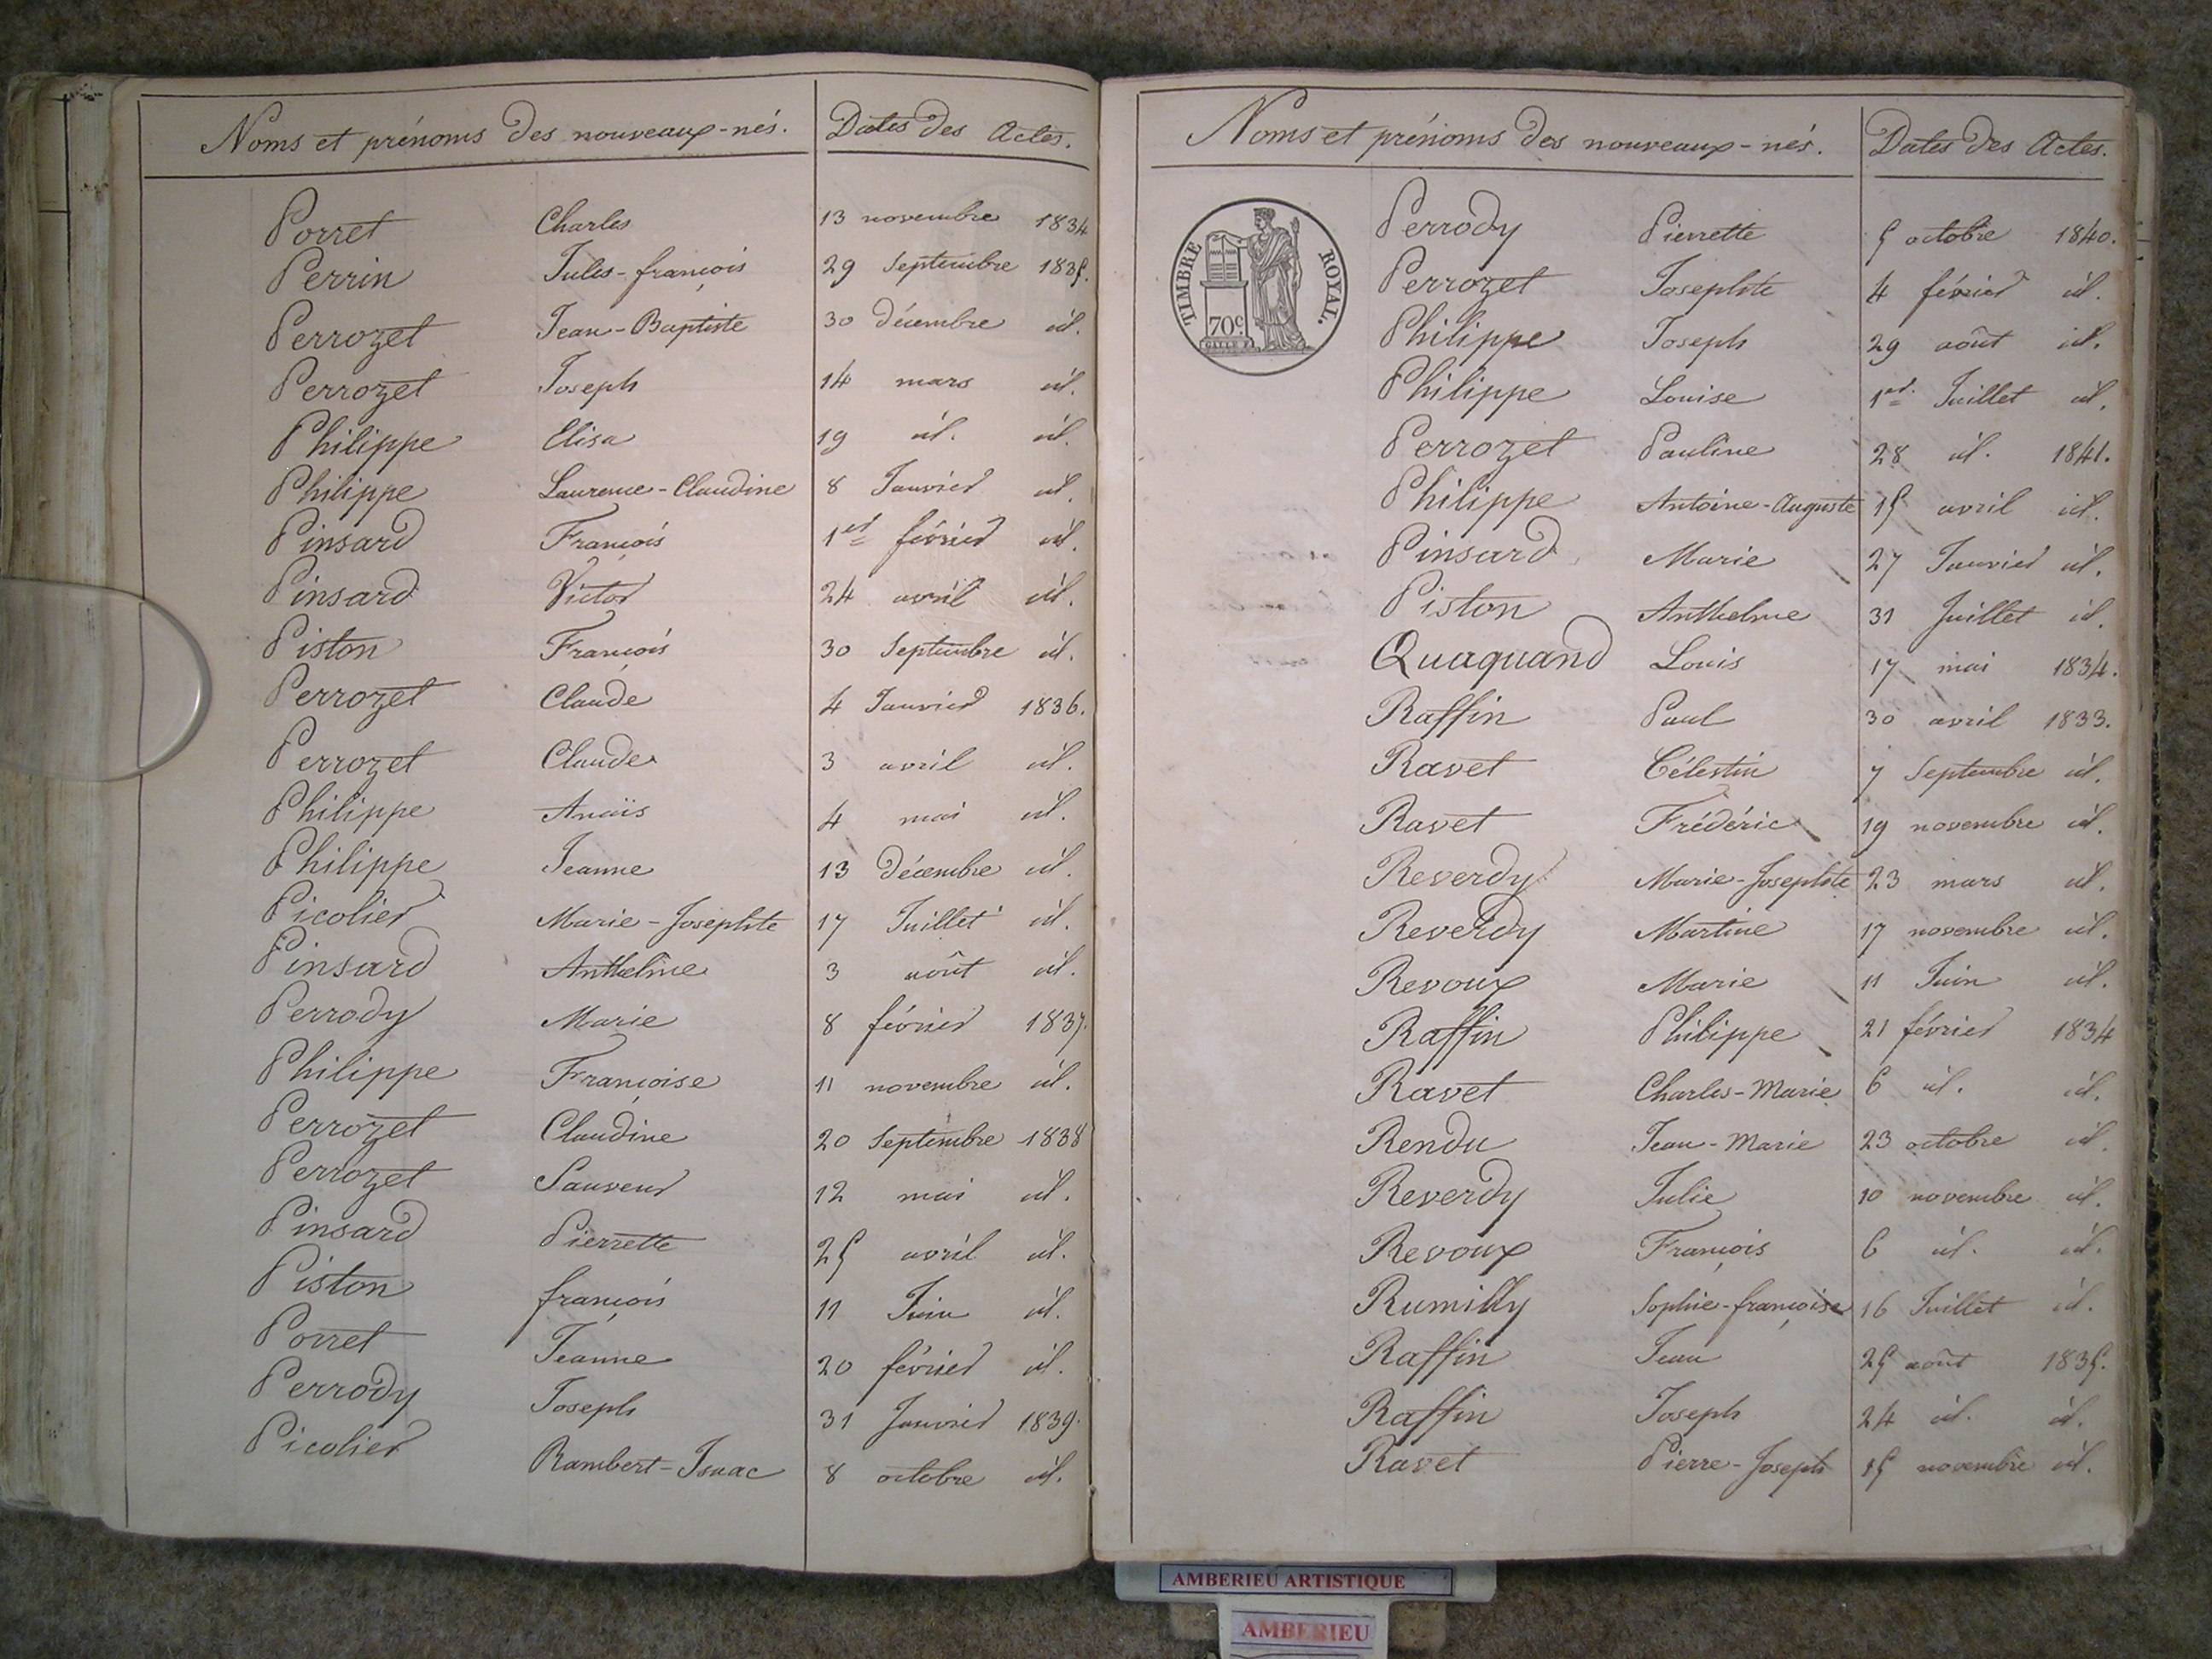 Noms et prénoms des nouveaux-nés. Dates des Actes.
Porret Charles 13 novembre 1834
Perrin Jules-françois 29 Septembre 1835.
Perrozet Jean-Baptiste 30 décembre id.
Perrozet Joseph 14 mars id.
Philippe Elisa 19 id. id.
Philippe Laurence-Claudine 8 Janvier id.
Pinsard François 1er février id.
Pinsard Victor 24 avril id.
Piston François 30 Septembre id.
Perrozet Claude 4 Janvier 1836.
Perrozet Claude 3 avril id.
Philippe Anaïs 4 mai id.
Philippe Jeanne 13 décembre id.
Picolier Marie-Josephte 17 Juillet id.
Pinsard Anthelme 3 août id.
Perrody Marie 8 février 1837.
Philippe Françoise 11 novembre id.
Perrozet Claudine 20 Septembre 1838
Perrozet Sauveur 12 mai id.
Pinsard Pierrette 25 avril id.
Piston françois 11 Juin id.
Porret Jeanne 20 février id.
Perrody Joseph 31 Janvier 1839.
Picolier Rambert-Isaac 8 octobre id.
Noms et prénoms des nouveaux-nés. Dates des Actes.
TIMBRE ROYAL.
70c.
Perrody Pierrette 5 octobre 1840.
Perrozet Josephte 4 février id.
Philippe Joseph 29 août id.
Philippe Louise 1er Juillet id.
Perrozet Pauline 28 id. 1841.
Philippe Antoine-Auguste 15 avril id.
Pinsard Marie 27 Janvier id.
Piston Anthelme 31 Juillet id.
Quaquand Louis 17 mai 1834.
Raffin Paul 30 avril 1833.
Ravet Célestin 7 Septembre id.
Ravet Frédéric 19 novembre id.
Reverdy Marie-Josephte 23 mars id.
Reverdy Martine 17 novembre id.
Revoux Marie 11 Juin id.
Raffin Philippe 21 février 1834
Ravet Charles-Marie 6 id. id.
Rendu Jean-Marie 23 octobre id.
Reverdy Julie 10 novembre id.
Revoux François 6 id. id.
Rumilly Sophie-françoise 16 Juillet id.
Raffin Jean 25 août 1835.
Raffin Joseph 24 id. id.
Ravet Pierre-Joseph 15 novembre id.
AMBERIEU ARTISTIQUE
AMBERIEU